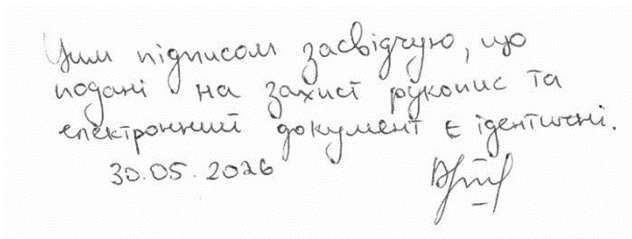 Цим підписом засвідчую, що
подані на захист рукопис та
електронний документ є ідентичні.
30.05.2026